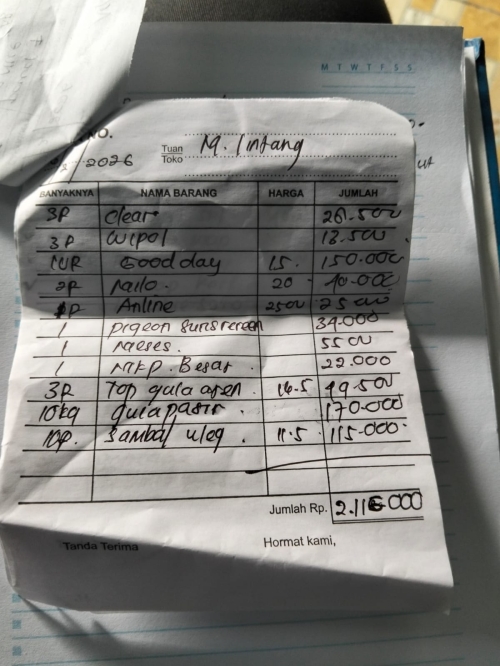 M T W T F S S
NO.
2026
Tuan M. lintang
Toko
BANYAKNYA NAMA BARANG HARGA JUMLAH
3P Clear 26.500
3P Wipol 18.500
10R Good day 15. 150.000
2P Milo. 20 40.000
1P Anline 2500 2500
1 Pigeon sunscreen 34.000
1 Meses. 5500
1 MKP. Besar 22.000
3R Top gula aren. 16.5 49.500
10kg gula pasir. 170.000
10P. Sambal uleg. 11.5 115.000
Jumlah Rp. 2.116.000
Tanda Terima Hormat kami,